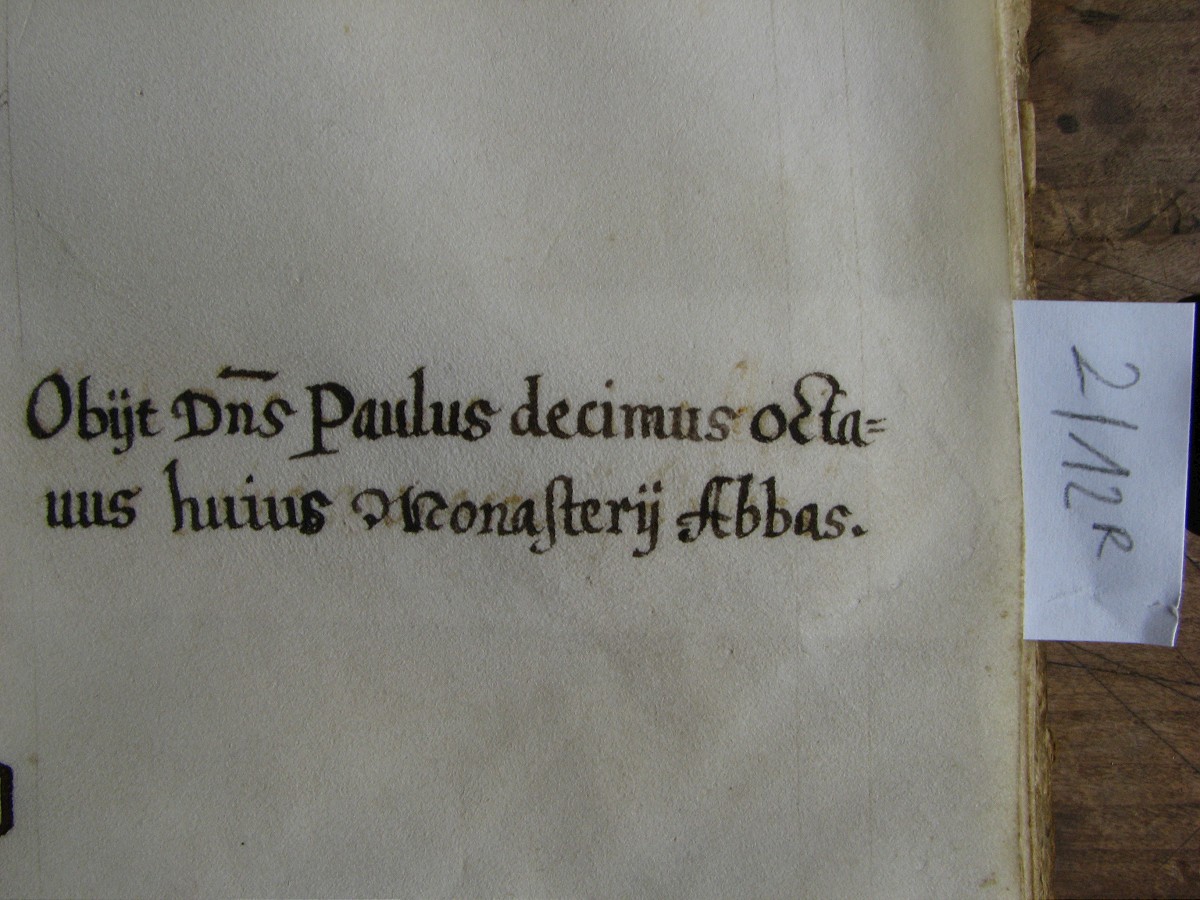 Obijt Dn̄s Paulus decimus octa=
uus huius Monasterij Abbas.
2/12R